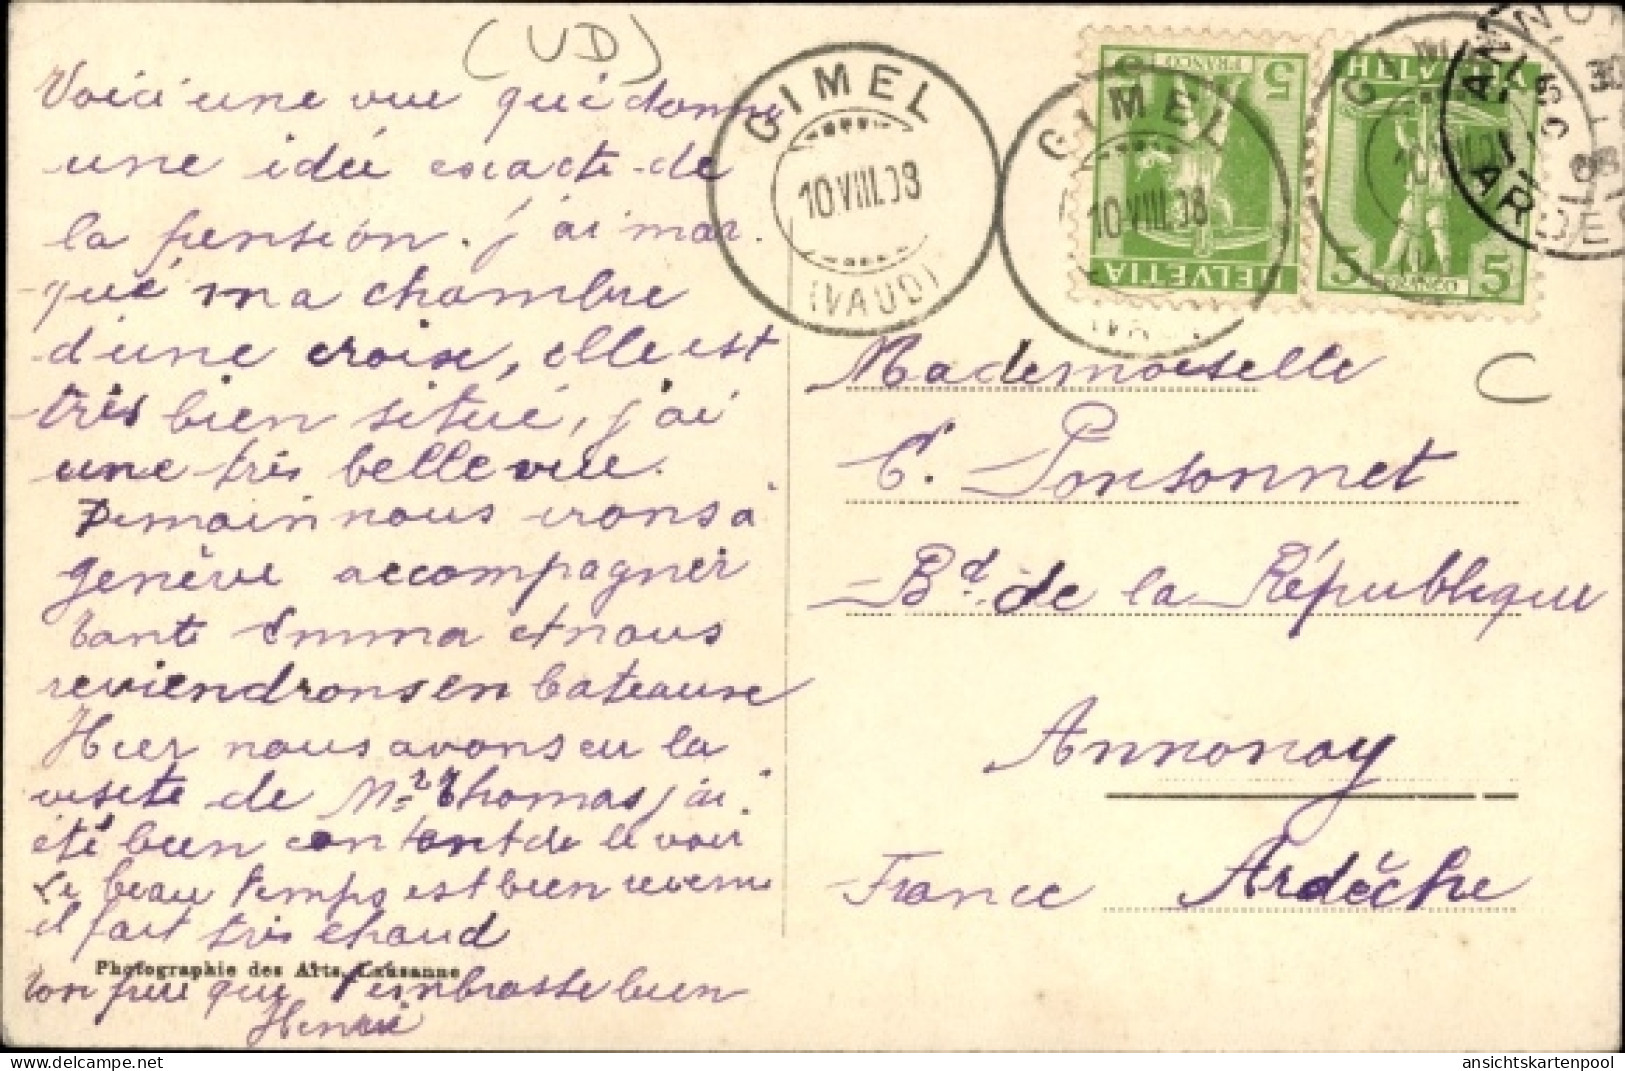 (VD)
Voici une vue qui donne
une idée exacte de
la pension. j'ai mar.
qué ma chambre
d'une croix, elle est
très bien situé, j'ai
une très belle vue.
Demain nous irons à
genève accompagner
tante Emma et nous
reviendrons en bateaux
Hier nous avons eu la
visite de Mr Thomas j'ai
été bien contant de le voir
Le beau temps est bien revenu
il fait très chaud
Photographie des Arts, Lausanne
ton frère qui t'embrasse bien
Henri
GIMEL
10 VIII.08
(VAUD)
GIMEL
10 VIII.08
(VAUD)
FRANCO
5
HELVETIA
HELVETIA
5
FRANCO
ARDECHE
Mademoiselle
C. Ponsonnet
Bd. de la République
Annonay
Ardèche
France
hosted on
ansichtskartenpool